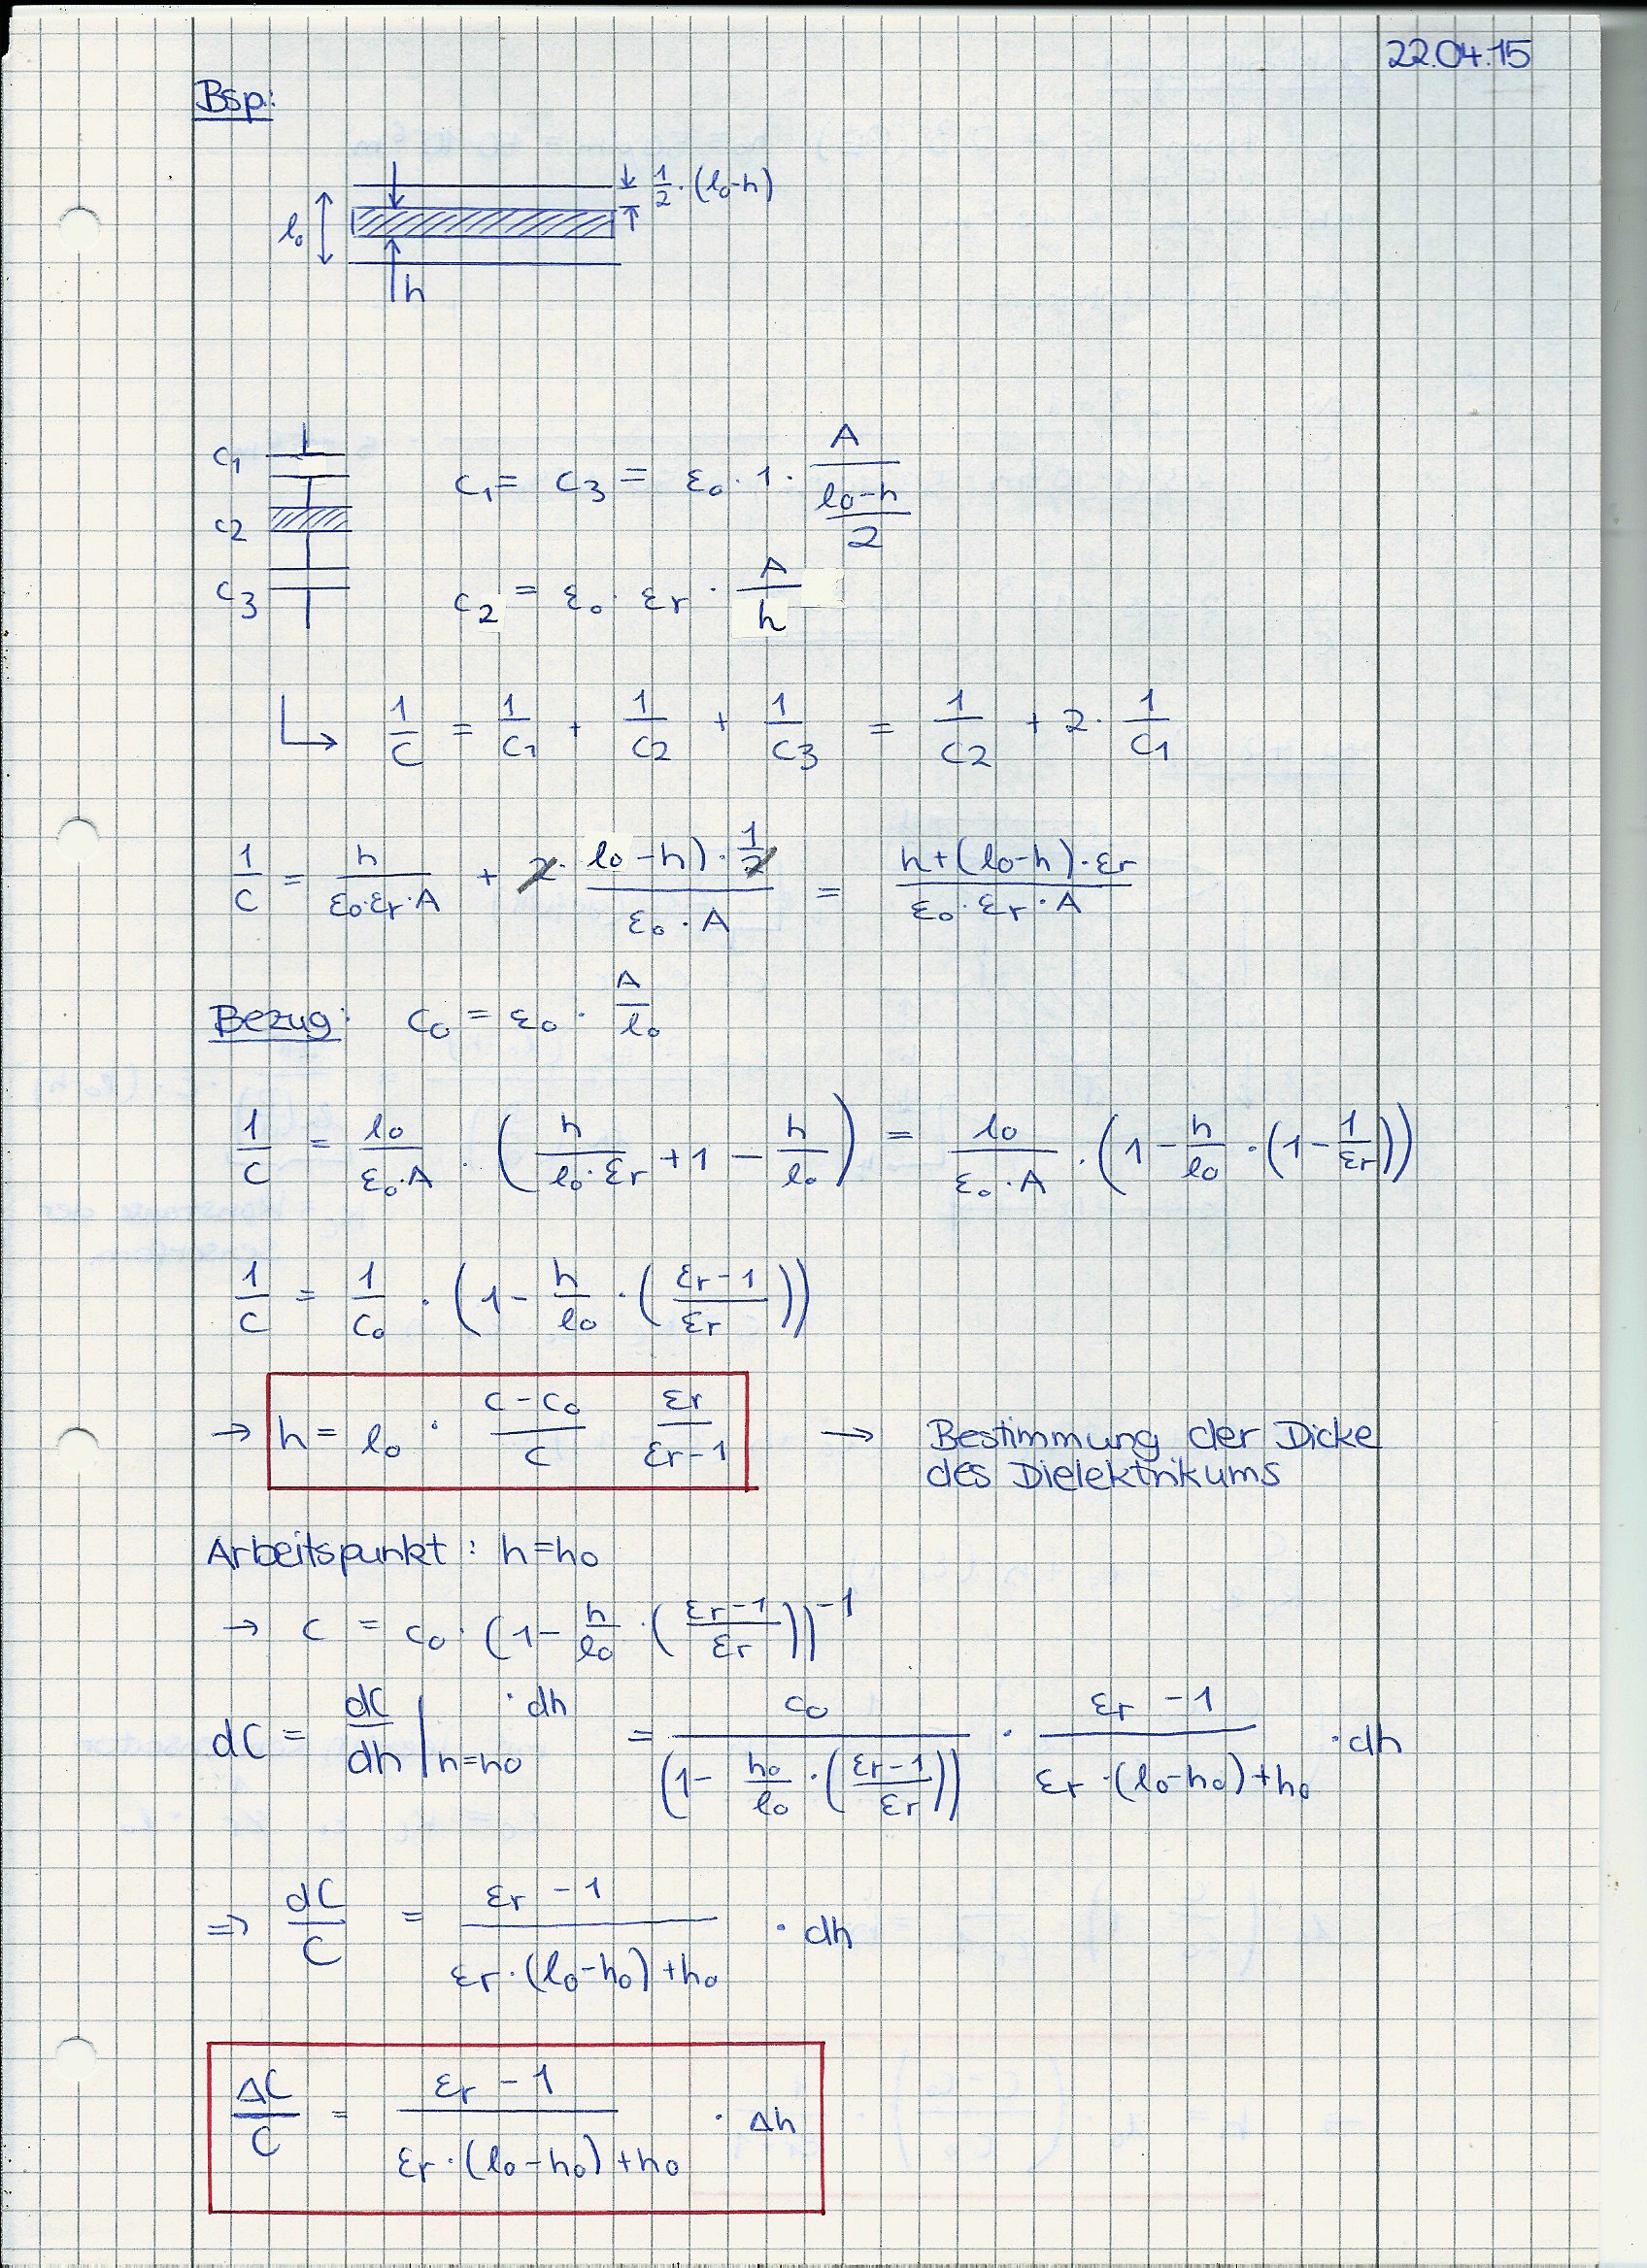 22.04.15
Bsp:
l₀ ↓ ↑ 1/2 · (l₀-h)
h
C₁ C₁ = C₃ = ε₀ · 1 · A/((l₀-h)/2)
C2
C3 C2 = ε₀ · εr · A/h
↳ 1/C = 1/C1 + 1/C2 + 1/C3 = 1/C2 + 2 · 1/C1
1/C = h/(ε₀·εr·A) + 2 · l₀-h) · 1/2/(ε₀ · A) = (h+(l₀-h)·εr)/(ε₀·εr·A)
Bezug: C₀ = ε₀ · A/l₀
1/C = l₀/(ε₀·A) · (h/(l₀·εr) + 1 - h/l₀) = l₀/(ε₀·A) · (1 - h/l₀ · (1 - 1/εr))
1/C = 1/C₀ · (1 - h/l₀ · ((εr-1)/εr))
→ h = l₀ · (C-C₀)/C εr/(εr-1) → Bestimmung der Dicke
des Dielektrikums
Arbeitspunkt: h=h₀
→ C = C₀ · (1 - h/l₀ · ((εr-1)/εr))⁻¹
dC = dC/dh |h=h₀ · dh = C₀/(1 - h₀/l₀ · ((εr-1)/εr)) · (εr-1)/(εr·(l₀-h₀)+h₀) · dh
⇒ dC/C = (εr-1)/(εr·(l₀-h₀)+h₀) · dh
ΔC/C = (εr-1)/(εr·(l₀-h₀)+h₀) · Δh